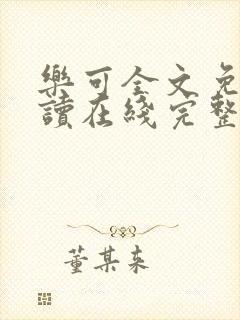 樂可全文免
讀在綫完整
董某来